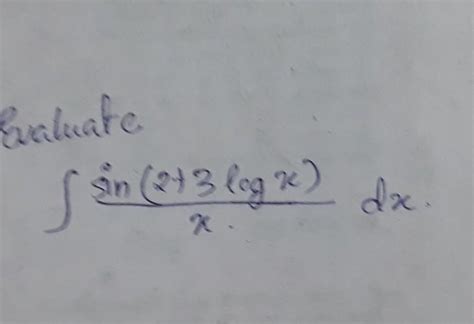 Evaluate
∫ sin(2+3 log x) / x. dx.